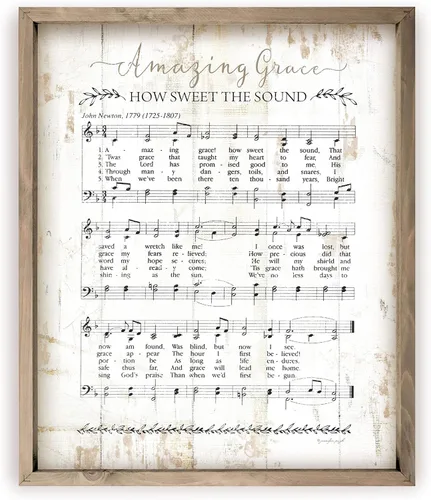 Amazing Grace
HOW SWEET THE SOUND
John Newton, 1779 (1725-1807)
1. A maz - ing grace! how sweet the sound, That
2. 'Twas grace that taught my heart to fear, And
3. The Lord has prom - ised good to me. His
4. Through many dan - gers, toils, and snares. I
5. When we've been there ten thou - sand years, Bright
saved a wretch like me! I once was lost, but
grace my fears re - lieved; How pre - cious did that
word my hope se - cures; He will my shield and
have al - read - y come; 'Tis grace hath brought me
shin - ing as the sun. We've no less days to
now am found, Was blind, but now I see.
grace ap - pear The hour I first be - lieved!
por - tion be As long as life en - dures.
safe thus far, And grace will lead me home.
sing God's praise Than when we'd first be - gun.